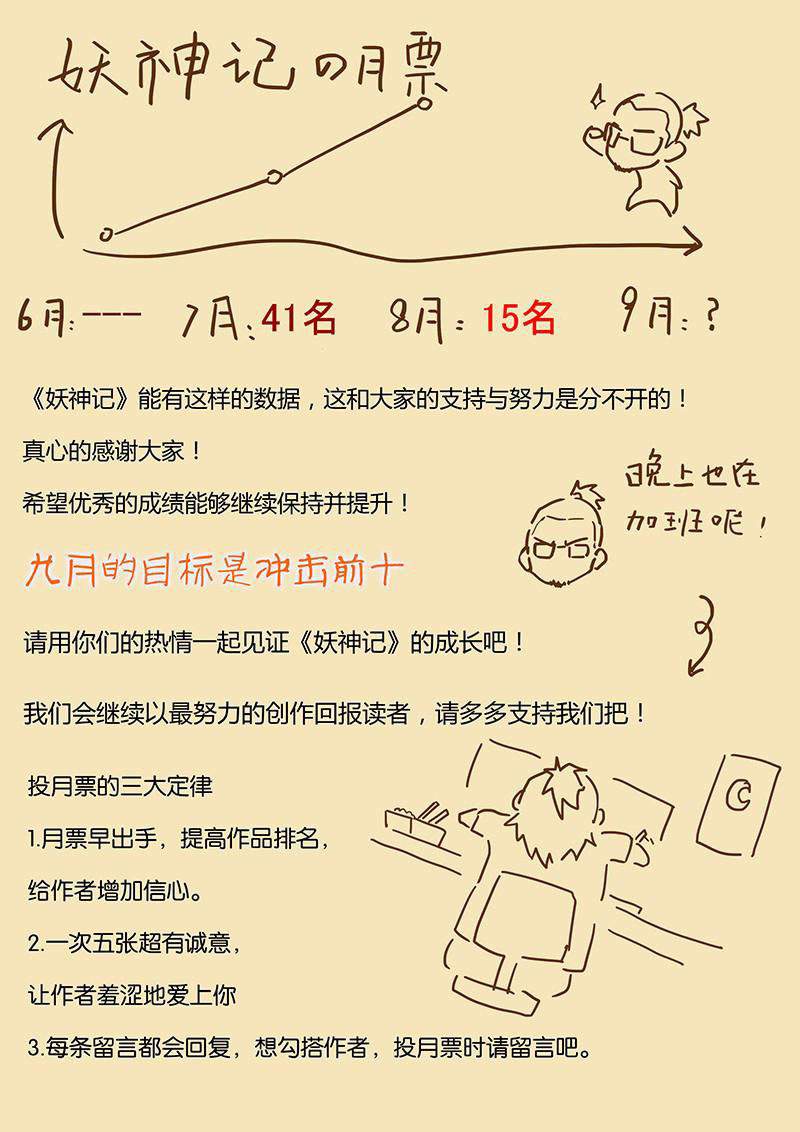 妖神记の月票
6月:--- 7月:41名 8月:15名 9月:?
《妖神记》能有这样的数据，这和大家的支持与努力是分不开的！
真心的感谢大家！
希望优秀的成绩能够继续保持并提升！
晚上也在
加班呢!
九月的目标是冲击前十
请用你们的热情一起见证《妖神记》的成长吧！
我们会继续以最努力的创作回报读者，请多多支持我们把！
投月票的三大定律
1.月票早出手，提高作品排名，
给作者增加信心。
2.一次五张超有诚意，
让作者羞涩地爱上你
3.每条留言都会回复，想勾搭作者，投月票时请留言吧。